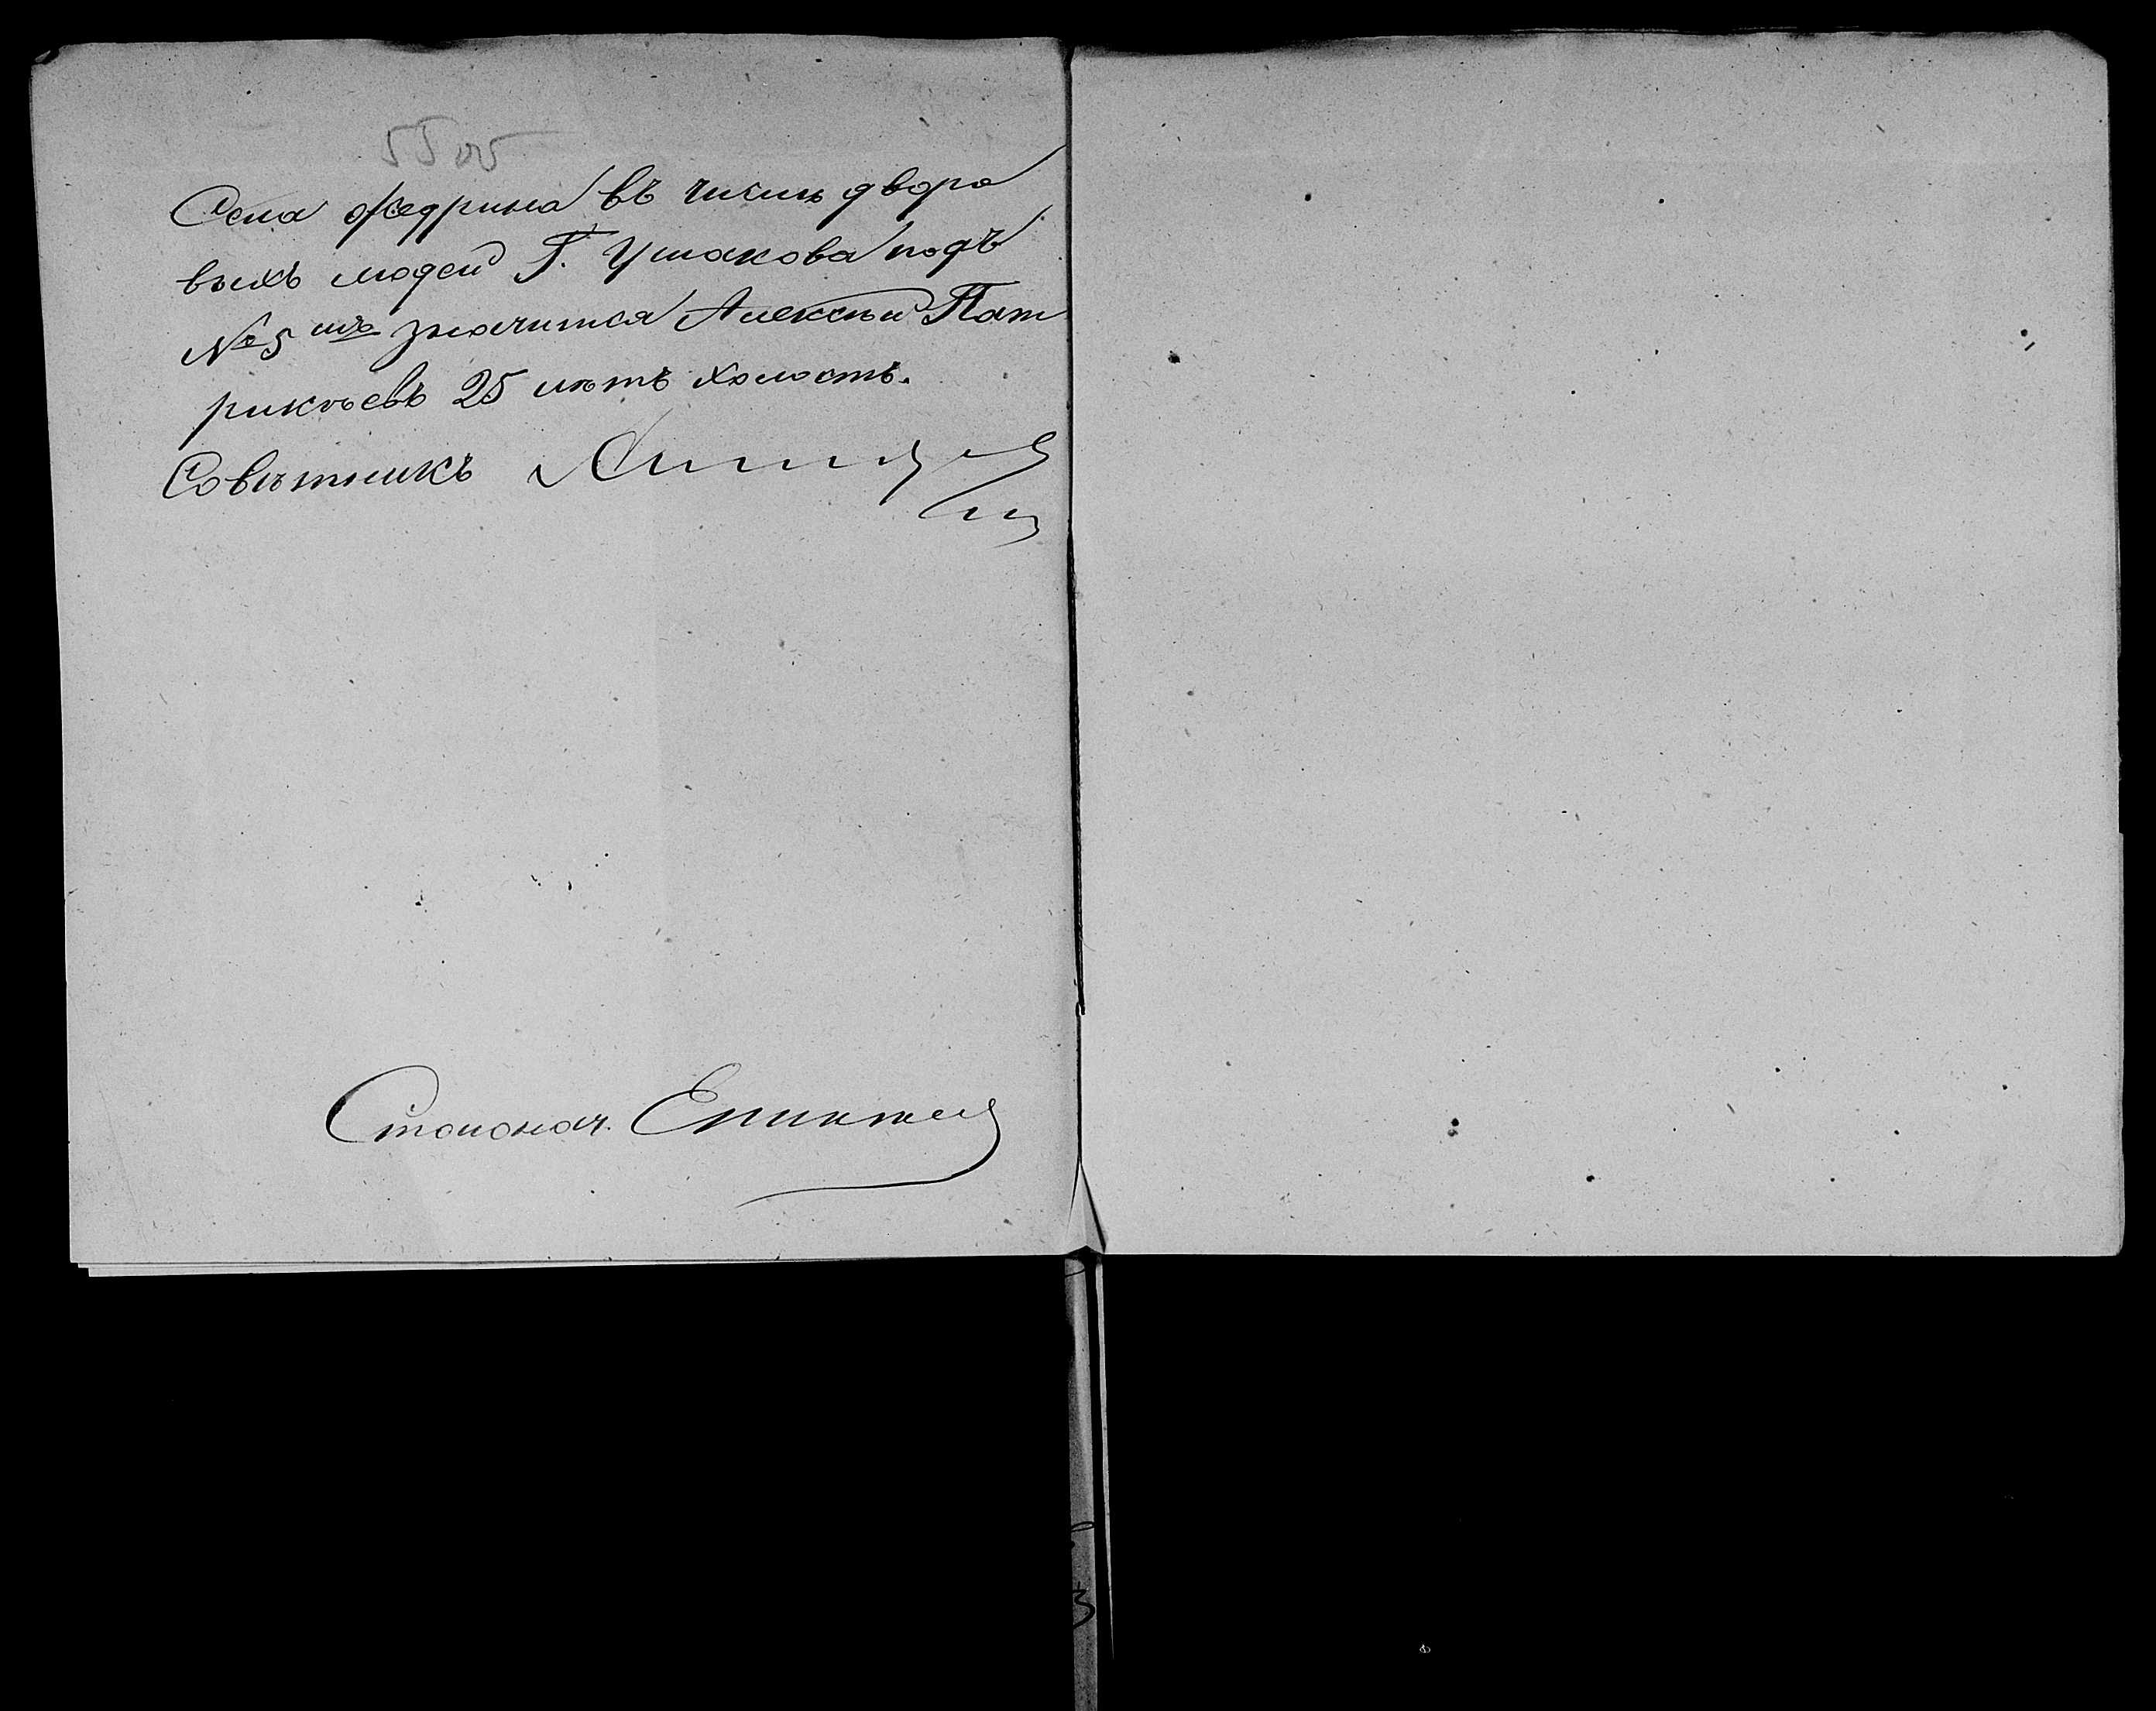 55 об
Села Жедрина въ числѣ дворо
выхъ людей Г. Ушакова подъ
№ 5 мъ значится Алексѣй Пат
рикѣевъ 25 лѣтъ холостъ.
Совѣтникъ
Столонач.